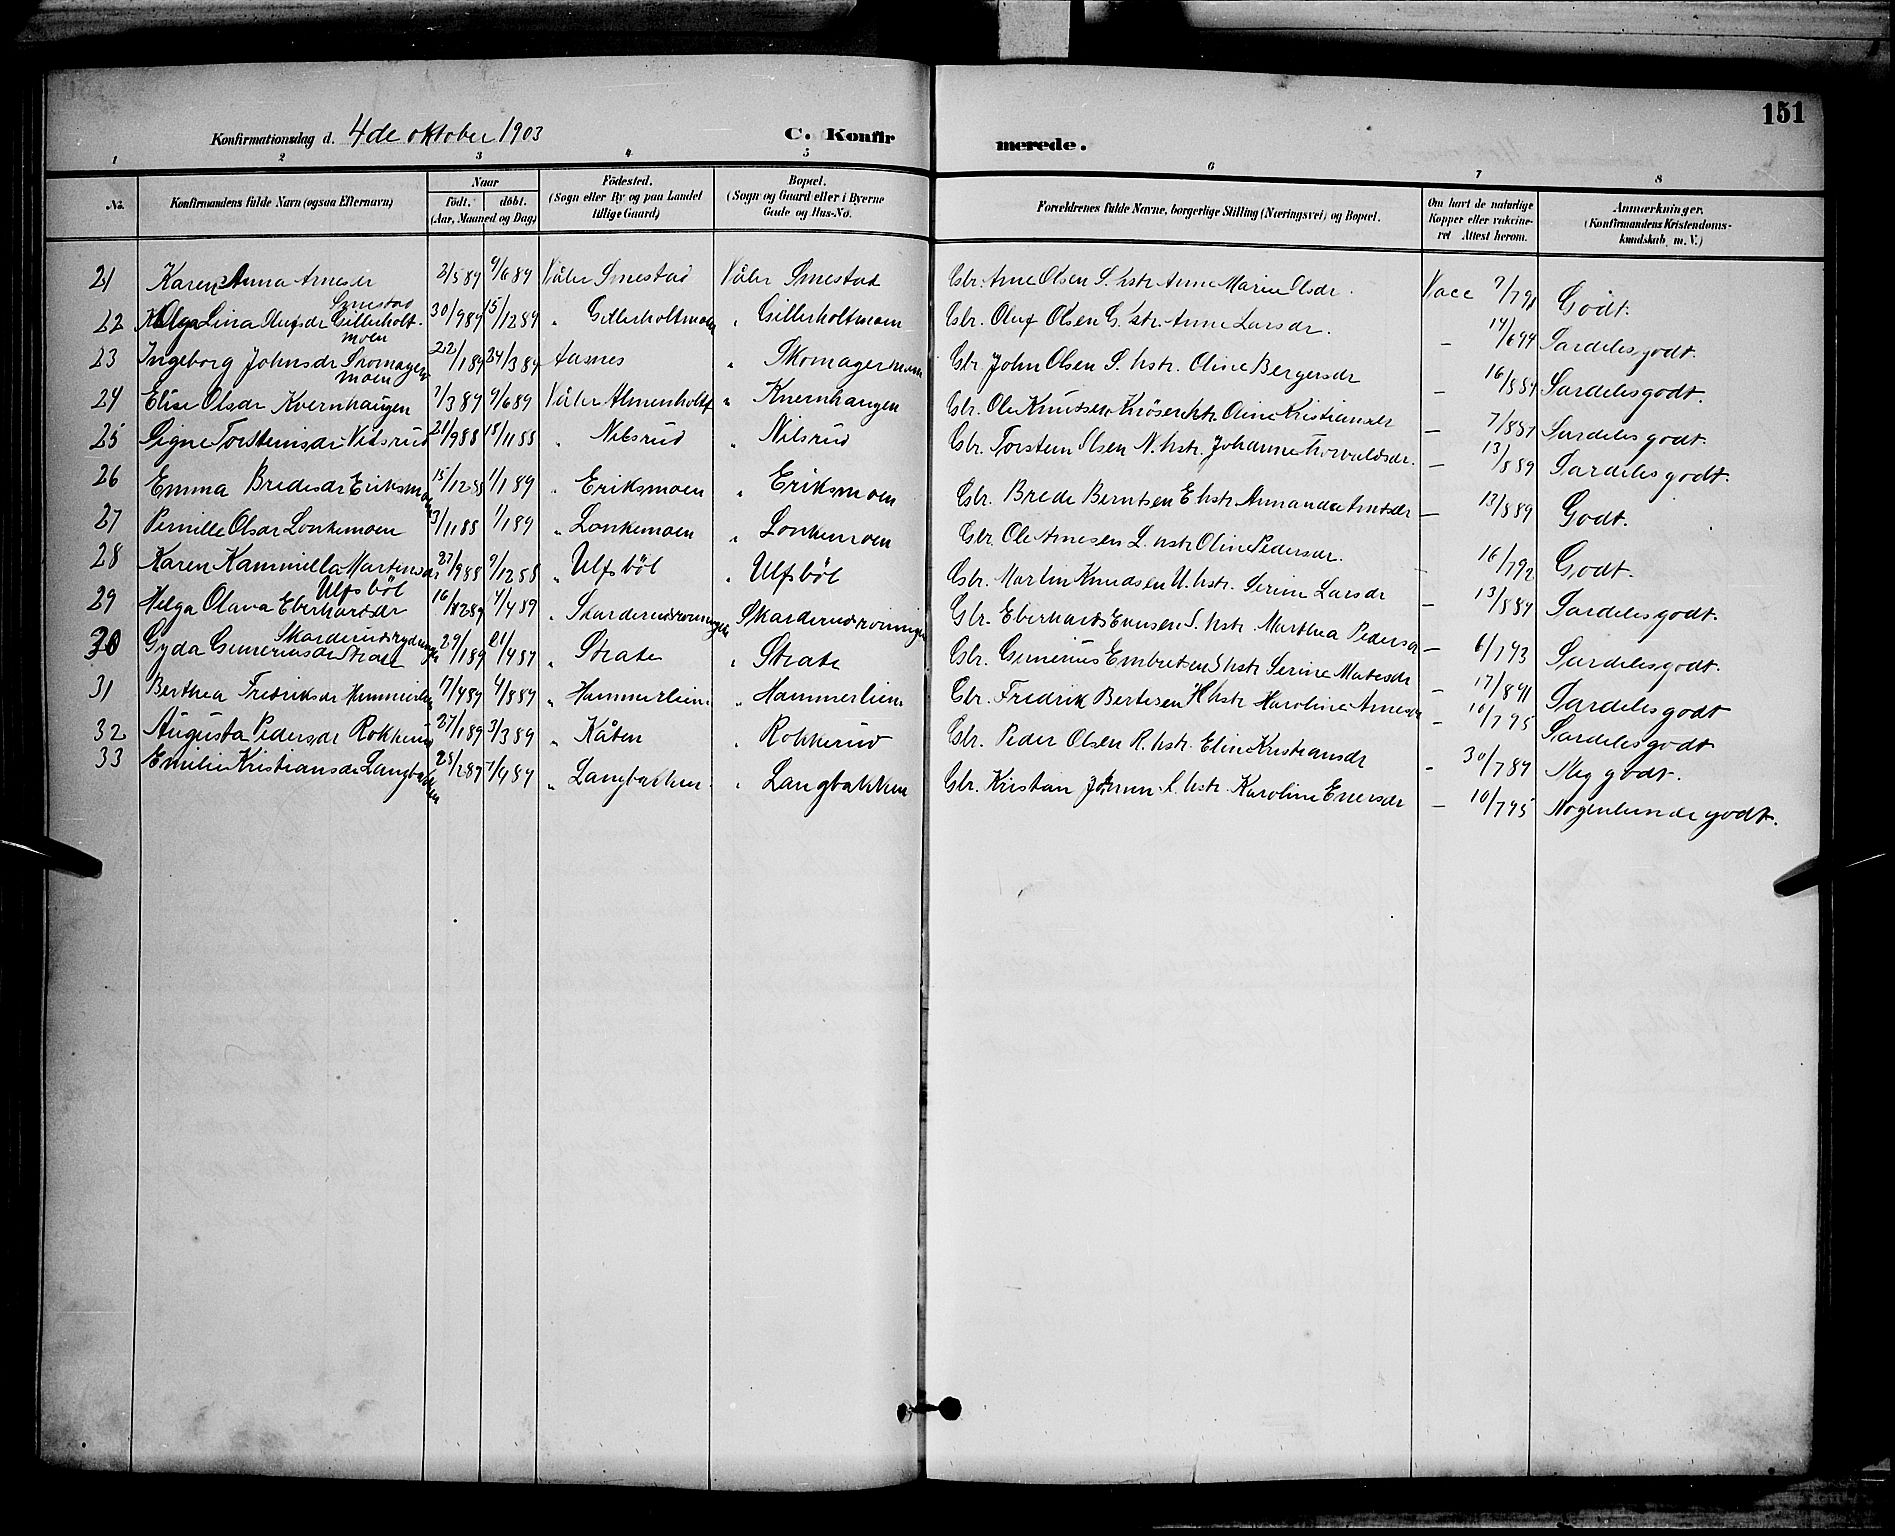 151
Konfirmationsdag d. 4de oktober 1903
C. Konfirmerede.
1 2 3 4 5 6 7 8
No. Konfirmandens fulde Navn (ogsaa Efternavn) Naar födt. döbt. (Aar, Maaned og Dag) Födested. (Sogn eller By og paa Landet tillige Gaard) Bopæl. (Sogn og Gaard eller i Byerne Gade og Hus-No. Forældrenes fulde Navne, borgerlige Stilling (Næringsvei) og Bopæl. Om havt de naturlige Kopper eller vakcineret Attest herom. Anmærkninger. (Konfirmandens Kristendomskundskab, m. V.)
21 Karen Anna Arnesdr Smestad 2/5 89 9/6 89 Våler Smestad Våler Smestad Gbr. Arne Olsen S. hstr. Anne Marie Olsdr. Vacc 9/7 91 Godt.
22 Olga Lina Olufsdr Gillerholtmoen 30/9 89 15/12 89 " Gillerholtmoen " Gillerholtmoen Gbr. Oluf Olsen G. hstr. Anne Larsdr. - 14/6 94 Særdeles godt.
23 Ingeborg Johnsdr Skomagermoen 22/1 89 24/3 89 Aasnes " Skomagermoen Gbr. John Olsen S. hstr. Oline Bergersdr - 16/8 89 Særdeles godt.
24 Elise Olsdr Kvernhaugen 7/3 89 9/6 89 Våler Almenholtf " Kvernhaugen Gbr. Ole Knutsen hstr. Oline Kristiansdr - 7/8 89 Særdeles godt.
25 Signe Torsteinsdr Nilsrud 21/9 88 18/11 88 " Nilsrud " Nilsrud Gbr. Torstein Olsen N. hstr. Johanne Thorvaldsdr. - 13/8 89 Særdeles godt.
26 Emma Bredesdr Eriksmoen 15/12 88 1/1 89 " Eriksmoen " Eriksmoen Gbr. Brede Berntsen E hstr Annanda Arntsdr - 13/8 89 Godt.
27 Pernille Olsdr Lonkemoen 3/11 88 1/1 89 " Lonkemoen " Lonkemoen Gbr. Ole Arnesen L. hstr Oline Pedersdr. - 16/7 92 Godt.
28 Karen Kammilla Martinsdr Ulfsböl 27/9 88 9/12 88 " Ulfsböl " Ulfsböl Gbr. Martin Knudsen U. hstr. Serine Larsdr - 13/8 89 Særdeles godt.
29 Helga Olava Eberhardsdr Skarderudrydningen 4/4 89 " Skarderudröningen Skarderudröningen Gbr. Eberhard Evensen S. hstr. Marthea Pedersdr - 6/7 93 Særdeles godt.
30 Gyda Guneriusdr Strate 29/1 89 21/4 89 " Strate " Strate Gbr. Gunerius Embretsen S hstr Serine Matesdr - 17/8 91 Særdeles godt
31 Berthea Fredriksdr Hammerlien 17/4 89 4/8 89 " Hammerlien " Hammerlien Gbr. Fredrik Bertesen H hstr Karoline Arnesdr - 10/7 95 Særdeles godt
32 Augusta Pedersdr Rokkerud 27/1 89 3/3 89 " Kåten " Rokkerud Gbr. Peder Olsen R. hstr. Eline Kristiansdr - 30/7 89 Meg godt.
33 Emilie Kristiansdr Langbakken 28/2 89 7/4 89 " Langbakken " Langbakken Gbr. Kristian L. hstr. Karoline Enersdr - 10/7 95 Nogenlunde godt.